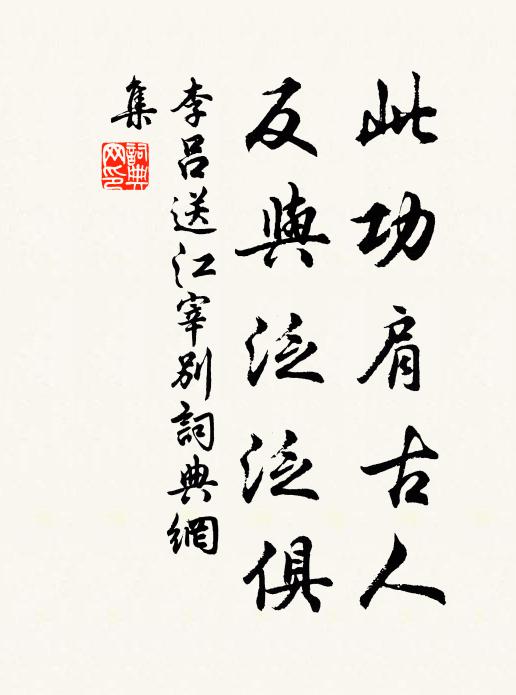 此功肩古人
反與泛泛俱
李呂送江宰別詞典網
集
詞典
网印